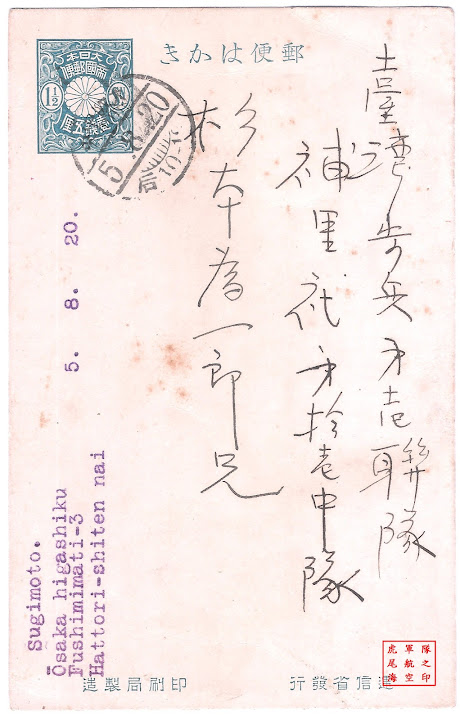 郵便はかき
大日本
帝國郵便
1½
壹錢五厘
5.8.20
后
臺灣歩兵才壱聯隊
補里社才拾壱中隊
杉本 一郎兄
5. 8. 20.
Sugimoto.
Ōsaka higashiku
Fushimimati-3
Hattori-shiten nai
遞信省發行
印刷局製造
虎尾海
軍航空
隊之印